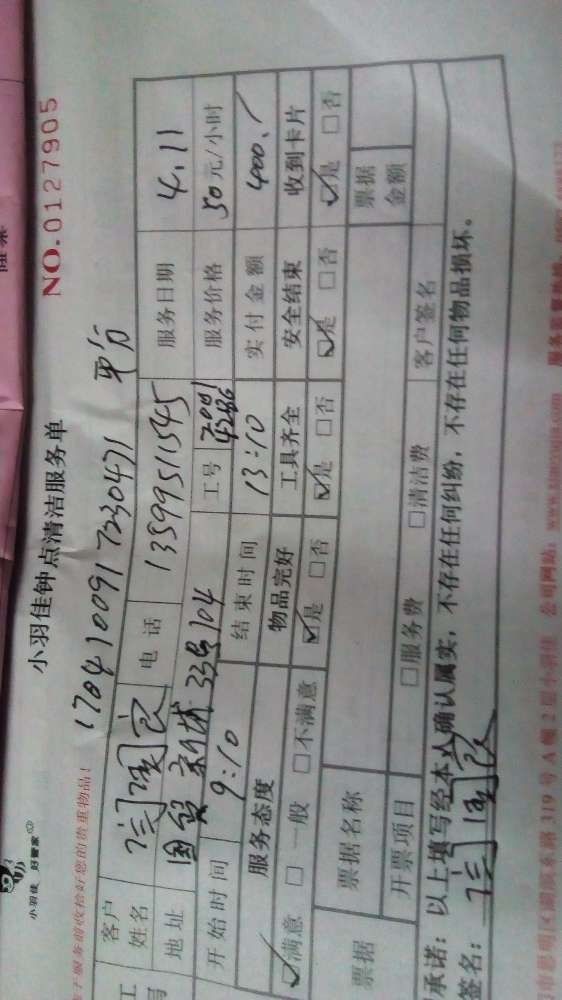 小羽佳 好管家
小羽佳钟点清洁服务单
NO.0127905
服务前收拾好您的贵重物品!
1704100917230471 平台
客户姓名 电话 13599511545 服务日期 4.11
地址 国贸新城 33号104 工号 服务价格 50元/小时
开始时间 9:10 结束时间 13:10 实付金额 400.
服务态度 物品完好 工具齐全 安全结束 收到卡片
☑满意 □一般 □不满意 ☑是 □否 ☑是 □否 ☑是 □否 ☑是 □否
票据 票据名称 票据金额
开票项目 □服务费 □清洁费 客户签名
承诺:以上填写经本人确认属实,不存在任何纠纷,不存在任何物品损坏。
签名:
319号A幢2层小羽佳 公司网站: